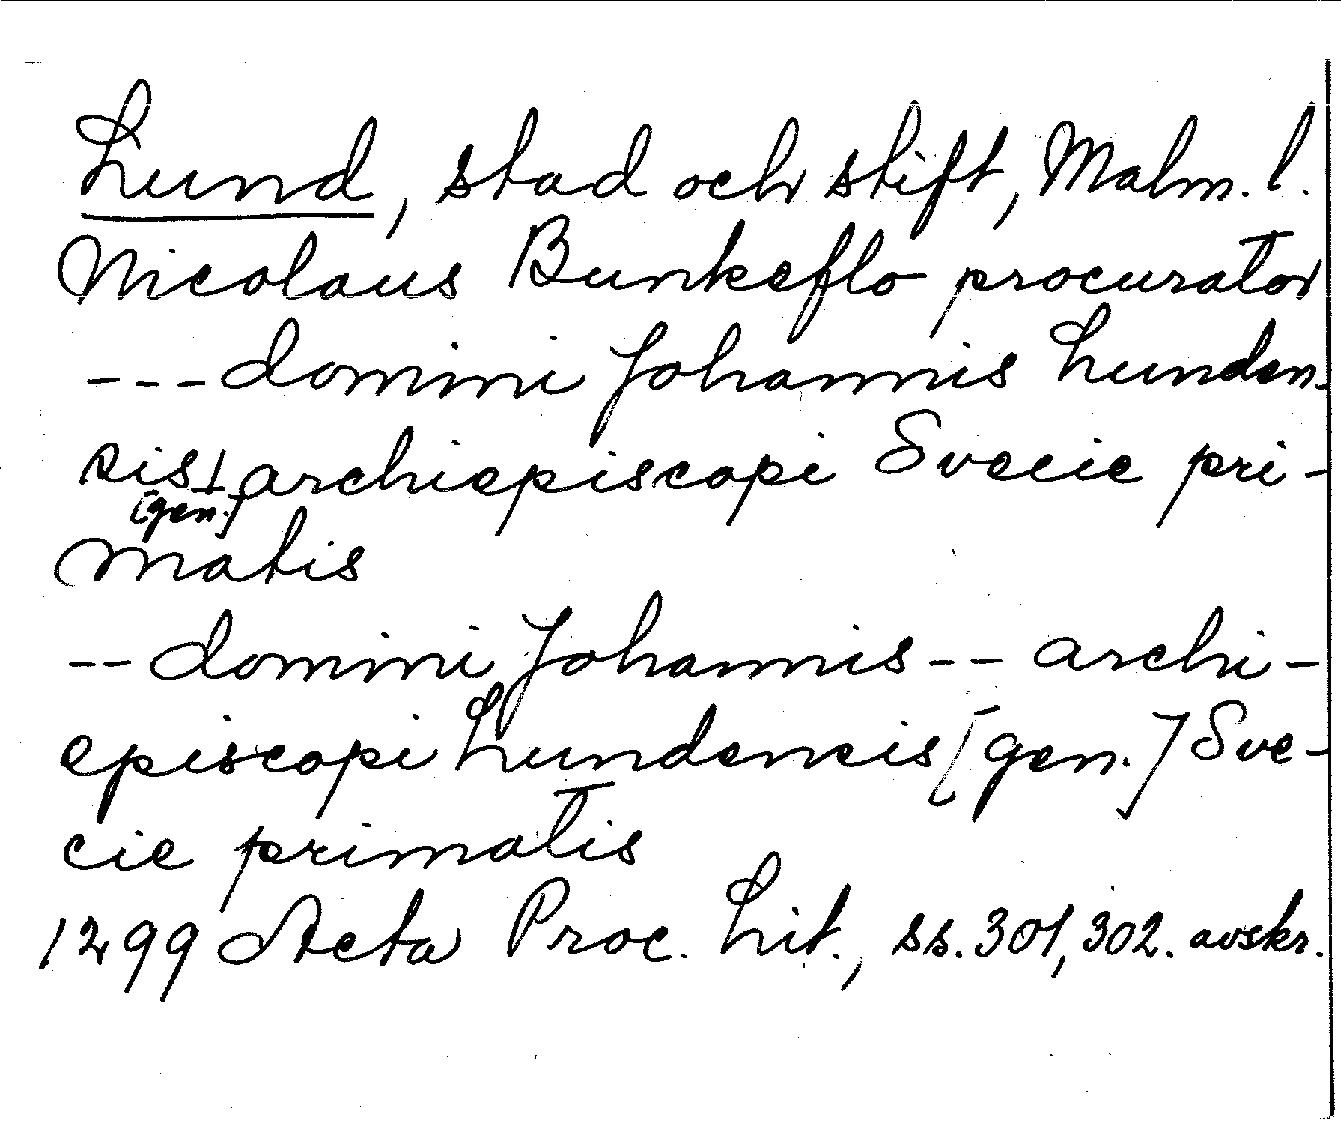 Lund, stad och stift, Malm. l.
Nicolaus Bunkeflo procurator
--- domini Johannis Lunden-
sis [gen.] archiepiscopi Svecie pri-
matis
-- domini Johannis -- archi-
episcopi Lundencis [gen.] Sve-
cie primatis
1299 Acta Proc. Lit., ss. 301, 302. avskr.